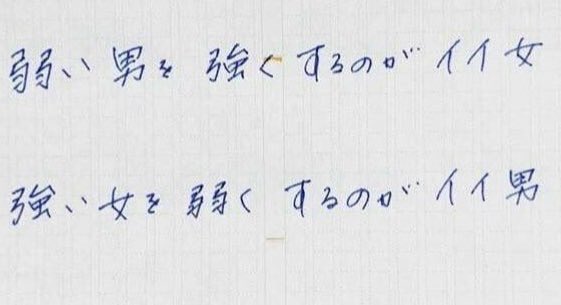 弱い男を強くするのがイイ女
強い女を弱くするのがイイ男